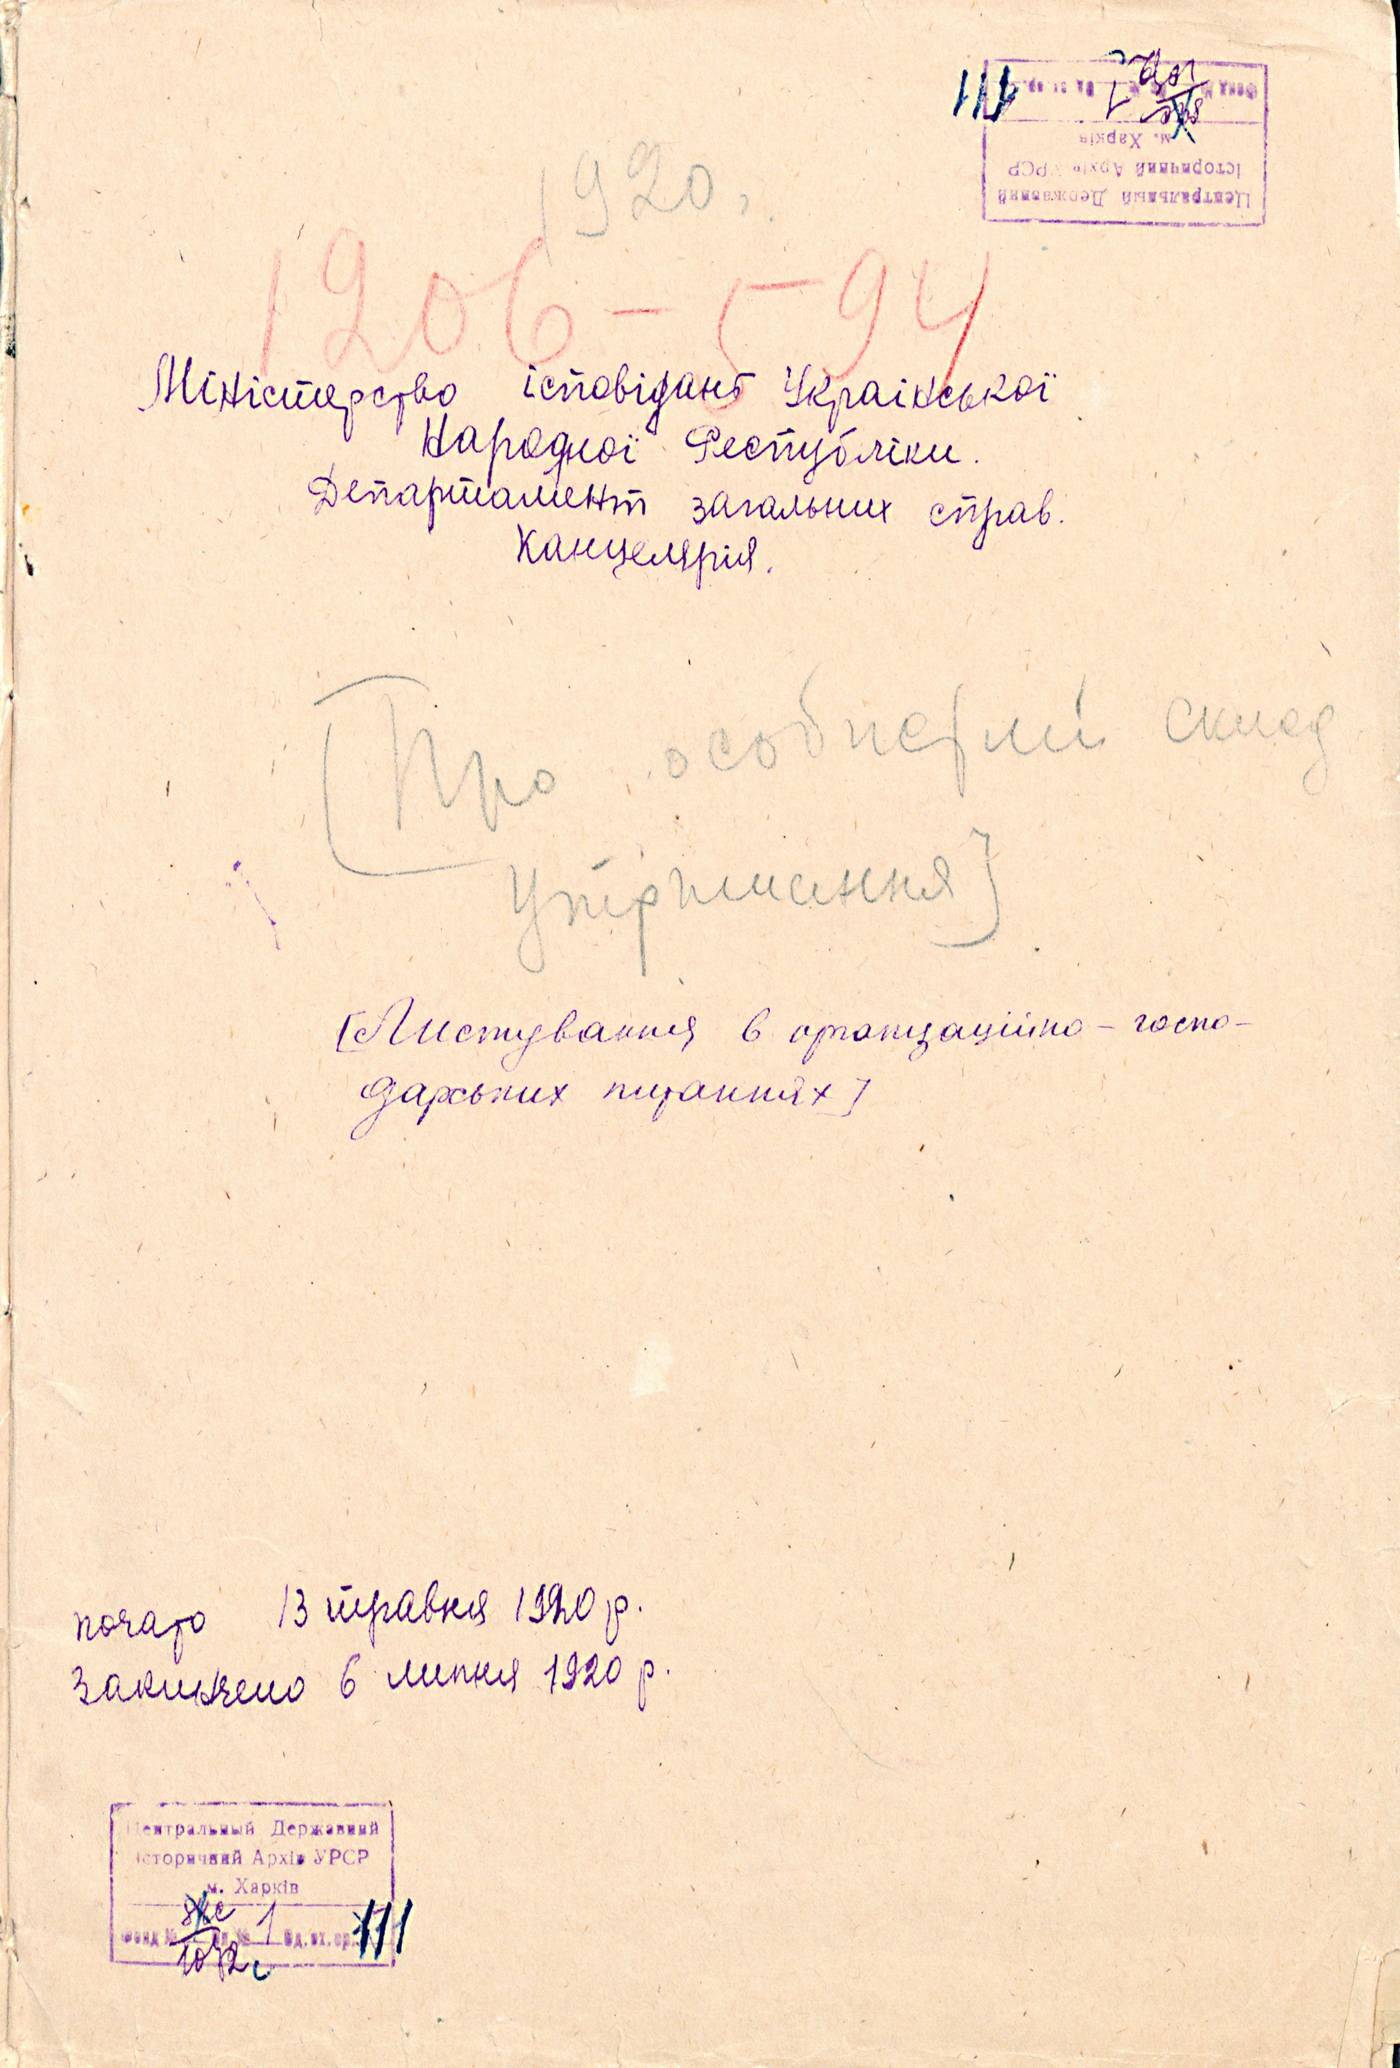 Центральный Державний
історичний Архів УРСР
м. Харків
Фонд № 1
1920 г.
1206-594
Міністерство ісповідань Украінської
Народної Республіки.
Департамент загальних справ.
Канцелярія.
[Про особистий склад
утримання]
[Листування в організаційно-госпо-
дарських питаннях]
почато 13 травня 1920 р.
Закінчено 6 липня 1920 р.
Центральный Державний
історичний Архів УРСР
м. Харків
Фонд № 1072с Оп. № 1 Од. зб. ар. 111